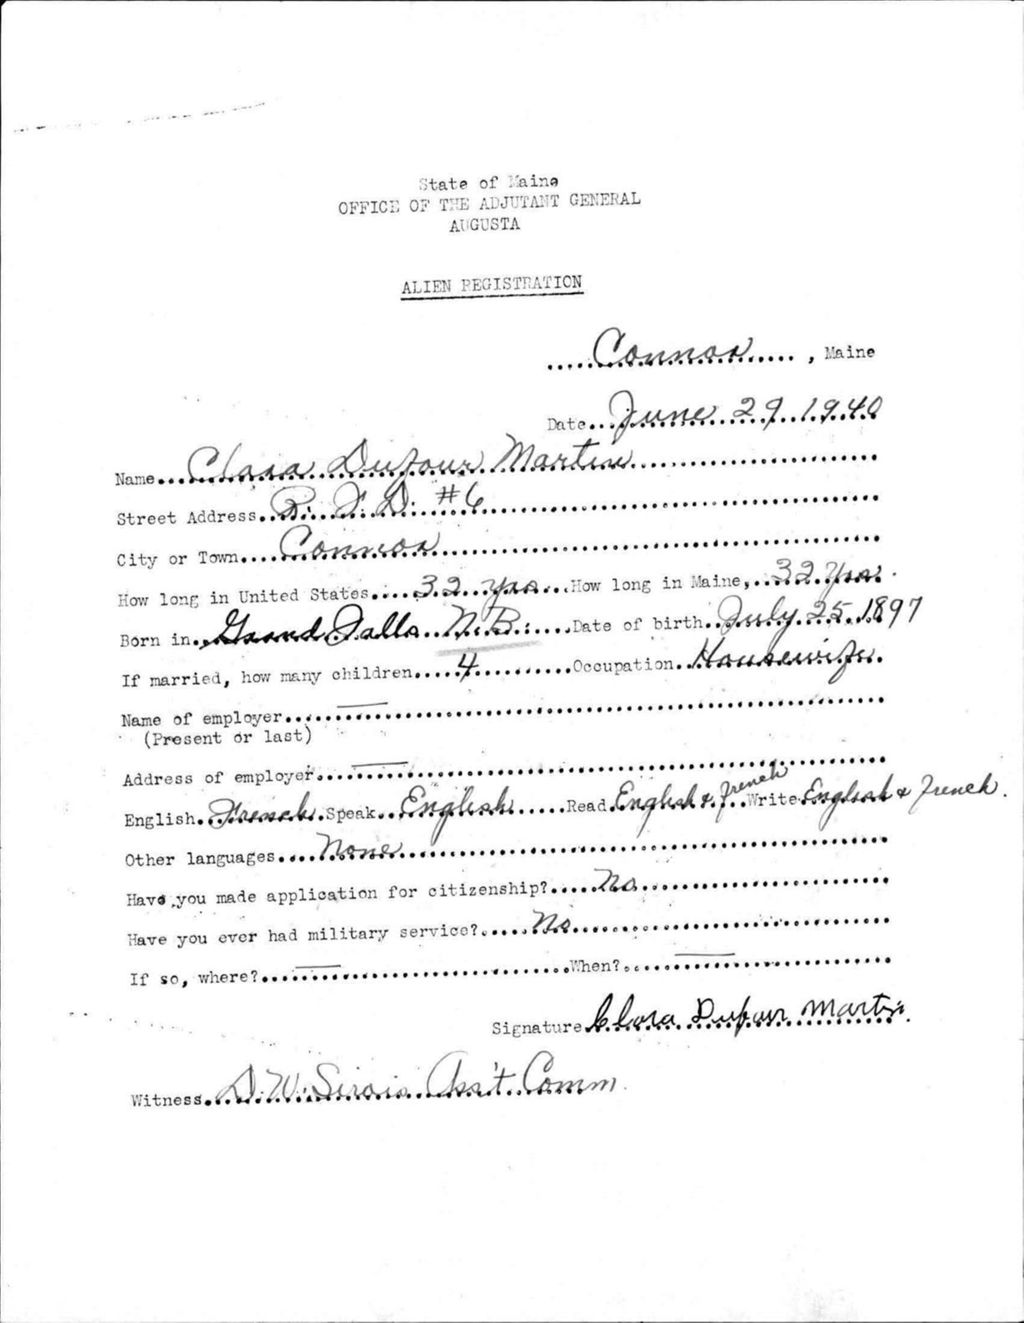 State of Maine
OFFICE OF THE ADJUTANT GENERAL
AUGUSTA
ALIEN REGISTRATION
Connor, Maine
Date June 29 1940
Name Clara Dufour Martin
Street Address R. F. D. #6
City or Town Connor
How long in United States 32 yrs. How long in Maine, 32 Yrs.
Born in Grand Falls N.B. Date of birth July 25 1897
If married, how many children 4 Occupation Housewife
Name of employer —
(Present or last)
Address of employer —
English French Speak English Read English & French Write English & French
Other languages None
Have you made application for citizenship? No
Have you ever had military service? No
If so, where? — When? —
Signature Clara Dufour Martin
Witness D. W. Sirois Ass't Comm.